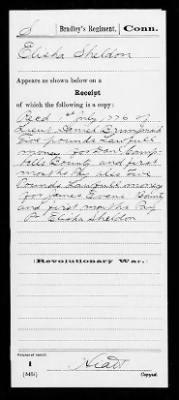 S | Bradley's Regiment, | Conn.
Elisha Sheldon
Appears as shown below on a
Receipt
of which the following is a copy:
Recd 1st July 1776 of
Lieut Daniel
five pounds Lawfull
money for Dan Camp
bells Bounty and first
months Pay also five
Pounds Lawfull money
for James Evans Bounty
and first months Pay
Pr Elisha Sheldon
(Revolutionary War.)
Number of record:
1
Hiatt
Copyist.